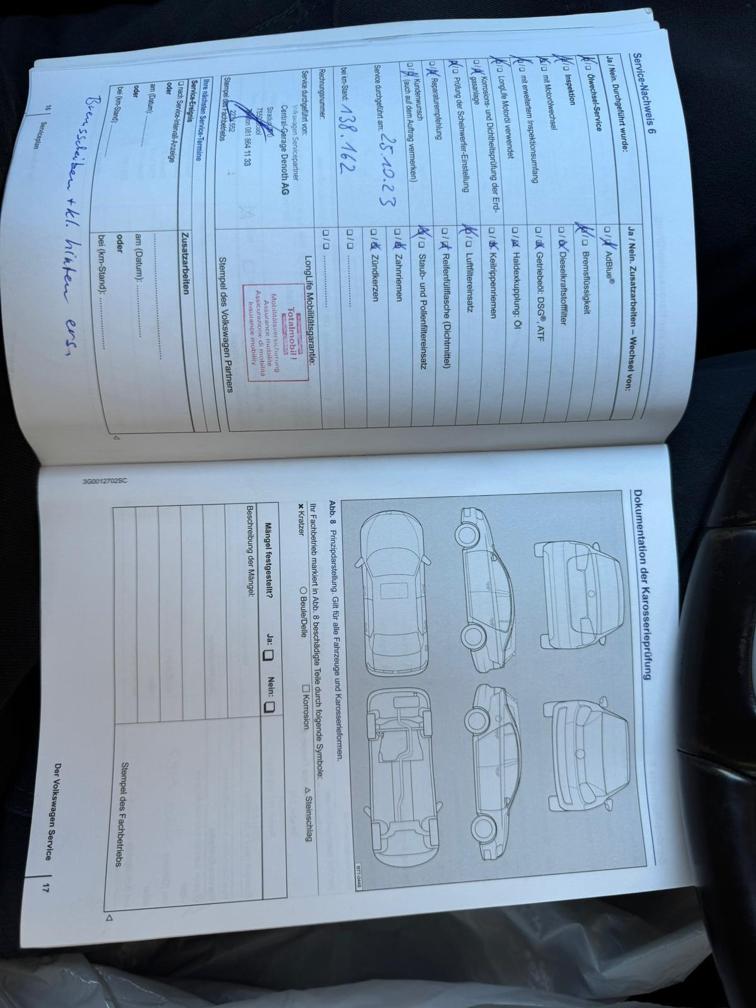 Service-Nachweis 6
Ja / Nein. Durchgeführt wurde:
Ölwechsel-Service
Inspektion
mit Motorölwechsel
mit erweitertem Inspektionsumfang
LongLife Motoröl verwendet
Korrosions- und Dichtheitsprüfung der Erd-
gasanlage
Prüfung der Scheinwerfer-Einstellung
Reparaturempfehlung
Kundenwunsch
(auch auf dem Auftrag vermerken)
Service durchgeführt am: 25.10.23
bei km-Stand: 138.162
Rechnungsnummer:
Service durchgeführt von:
Volkswagen Servicepartner
Central-Garage Denoth AG
081 864 11 33
Stempel des Fachbetriebs
Ja / Nein. Zusatzarbeiten – Wechsel von:
AdBlue®
Bremsflüssigkeit
Dieselkraftstofffilter
Getriebeöl: DSG®, ATF
Haldexkupplung: Öl
Keilrippenriemen
Luftfiltereinsatz
Reifenfüllflasche (Dichtmittel)
Staub- und Pollenfiltereinsatz
Zahnriemen
Zündkerzen
LongLife Mobilitätsgarantie:
Totalmobil!
Mobilitätsversicherung
Assurance mobilité
Assicurazione di mobilità
Insurance mobility
Stempel des Volkswagen Partners
Ihre nächsten Service-Termine
Service-Ereignis
nach Service-Intervall-Anzeige
oder
am (Datum):
oder
bei (km-Stand):
Zusatzarbeiten
am (Datum):
oder
bei (km-Stand):
Bremsscheiben + kl. hinten ers.
16 Serviceplan
Dokumentation der Karosserieprüfung
Abb. 8 Prinzipdarstellung. Gilt für alle Fahrzeuge und Karosserieformen.
Ihr Fachbetrieb markiert in Abb. 8 beschädigte Teile durch folgende Symbole:
x Kratzer ○ Beule/Delle □ Korrosion △ Steinschlag
Mängel festgestellt? Ja: Nein:
Beschreibung der Mängel:
Stempel des Fachbetriebs
3G0012702SC
Der Volkswagen Service 17